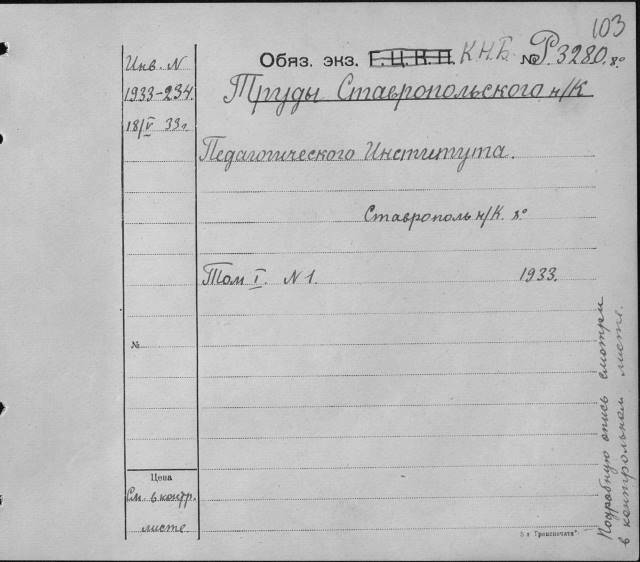 103
Обяз. экз. Г.Ц.К.П. К.Н.Б. № Р.3280. 8°
Инв. N
1933-234.
18/V 33г
Труды Ставропольского н/К
Педагогического Института.
Ставрополь н/К. 8°
Том I. N 1. 1933.
№
Цена
См. в контр.
листе
Подробную опись смотри
в контрольном листе.